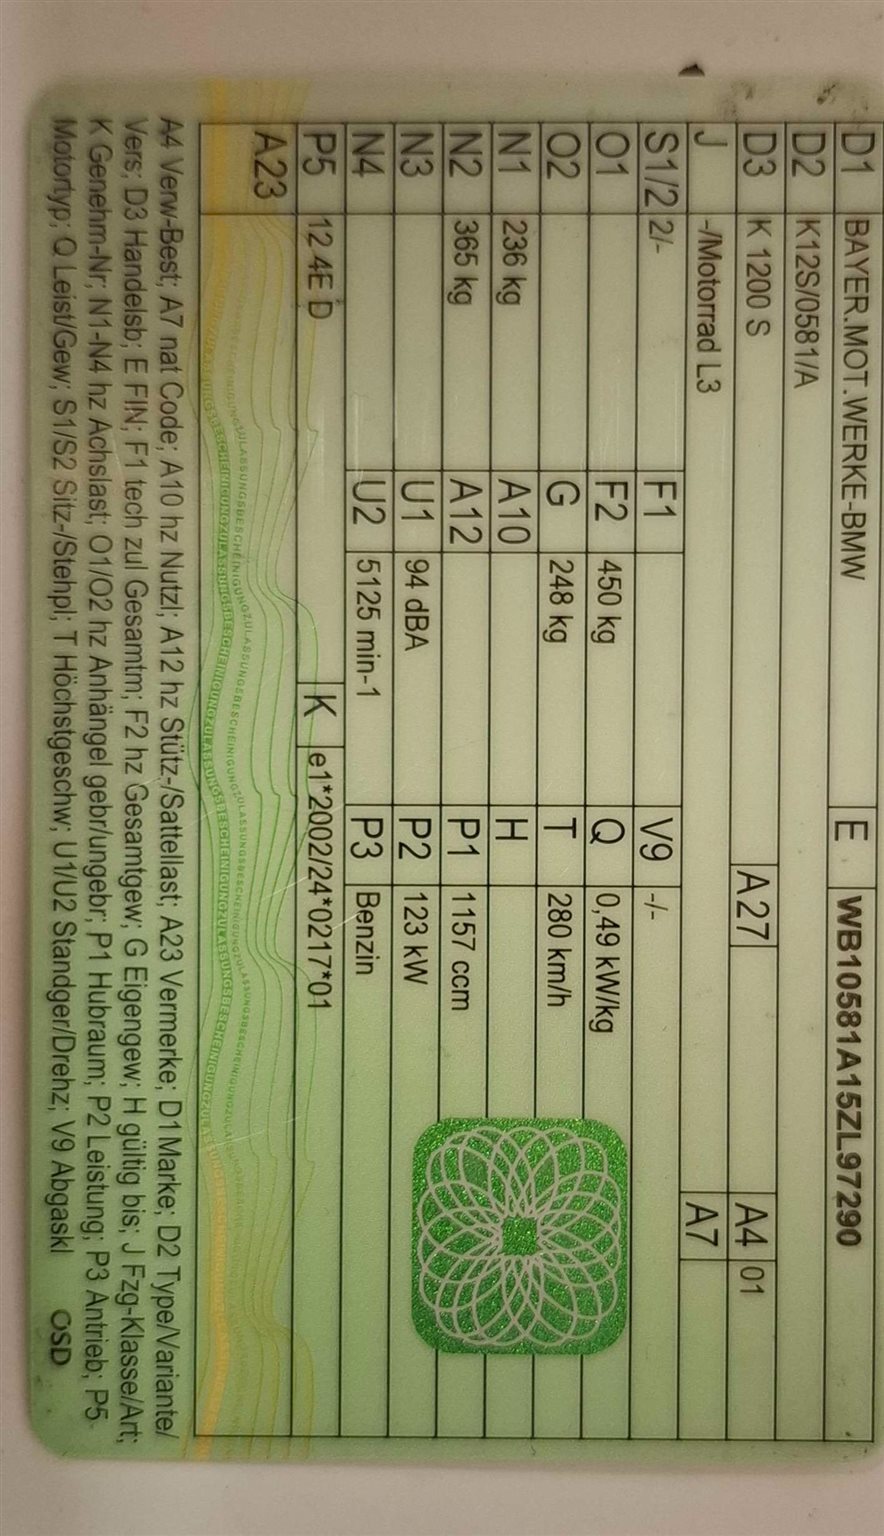 D1 BAYER.MOT.WERKE-BMW E WB10581A15ZL97290
D2 K12S/0581/A
D3 K 1200 S A27 A4 01
J -/Motorrad L3 A7
S1/2 2/- F1 V9 -/-
O1 F2 450 kg Q 0,49 kW/kg
O2 G 248 kg T 280 km/h
N1 236 kg A10 H
N2 365 kg A12 P1 1157 ccm
N3 U1 94 dBA P2 123 kW
N4 U2 5125 min-1 P3 Benzin
P5 12 4E D K e1*2002/24*0217*01
A23
ZULASSUNGSBESCHEINIGUNG
A4 Verw-Best; A7 nat Code; A10 hz Nutzl; A12 hz Stütz-/Sattellast; A23 Vermerke; D1 Marke; D2 Type/Variante/
Vers; D3 Handelsb; E FIN; F1 tech zul Gesamtm; F2 hz Gesamtgew; G Eigengew; H gültig bis; J Fzg-Klasse/Art;
K Genehm-Nr; N1-N4 hz Achslast; O1/O2 hz Anhängel gebr/ungebr; P1 Hubraum; P2 Leistung; P3 Antrieb; P5
Motortyp; Q Leist/Gew; S1/S2 Sitz-/Stehpl; T Höchstgeschw; U1/U2 Standger/Drehz; V9 Abgaskl OSD